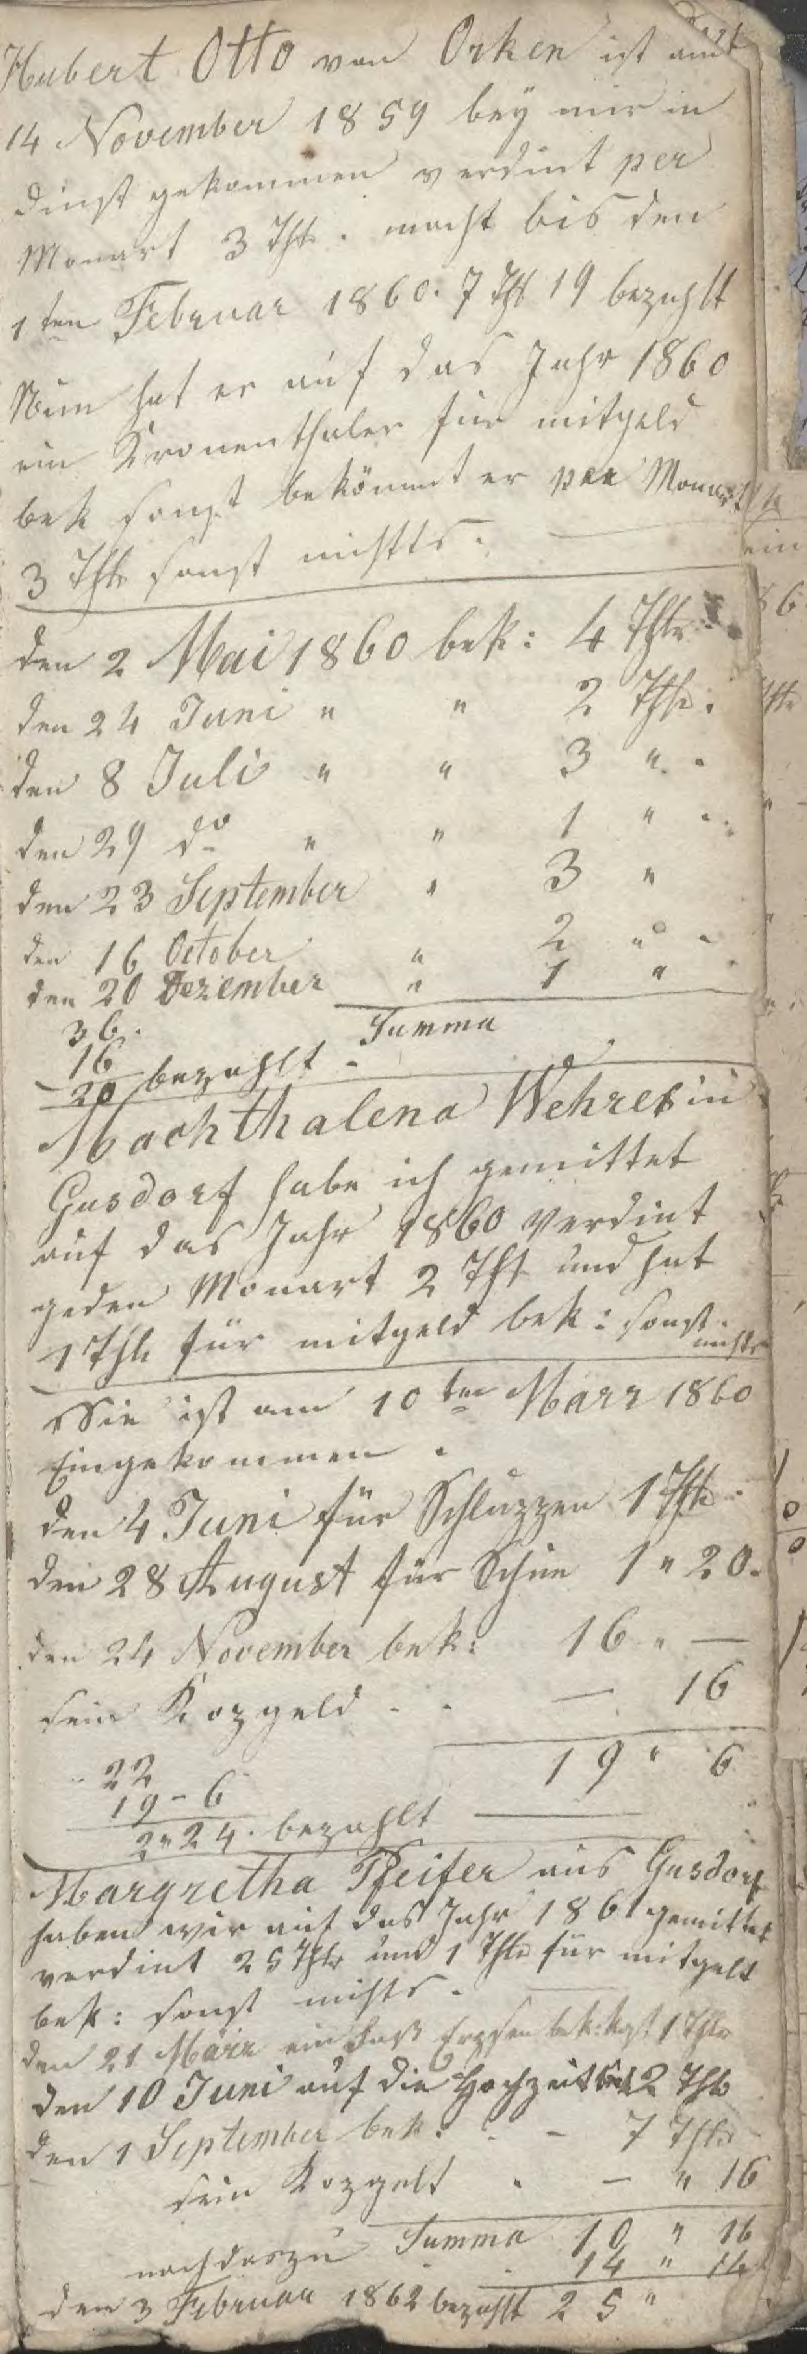 Hubert Otto von Orken ist am
14 November 1859 bey mir in
dinst gekommen verdint per
Monart 3 Thlr. macht bis den
1ten Februar 1860. 7 Thl 19 bezahlt
Nun hat er auf das Jahr 1860
ein Kronenthaler für mitgeld
bek sonst bekömmt er per Monart
3 Thlr sonst nichtts.
den 2 Mai 1860 bek: 4 Thlr
den 24 Juni " " 2 Thlr.
den 8 Juli " " 3 " .
den 29 do " " 1 " .
den 23 September " 3 "
den 16 October " 2 " .
den 20 Dezember " 1 "
Summa
36.
16
20 bezahlt.
Machthalena Wehres in
Gusdorf habe ich gemittet
auf das Jahr 1860 verdint
geden Monart 2 Thl und hat
1 Thlr für mitgeld bek: sonst
nichts
Sie ist am 10ten Marz 1860
Eingekommen.
den 4 Juni für Schluzzen 1 Thlr
den 28 August für Schue 1 " 20.
den 24 November bek: 16 " —
sein Kozgeld . . — 16
19 " 6
22
19 - 6
2 " 24. bezahlt
Margretha Pfeifer aus Gusdorf
haben wir auf das Jahr 1861 gemittet
verdint 25 Thlr und 1 Thlr für mitgelt
bek: sonst nichts.
den 21 März ein Faß Erpsen bek: kost 1 Thlr
den 10 Juni auf die Hochzeit bek 2 Thlr
den 1 September bek: . - 7 Thlr
sein Kozgelt . — " 16
Summa 10 " 16
noch dazzu 14 " 14
den 3 Februar 1862 bezahlt 25 "